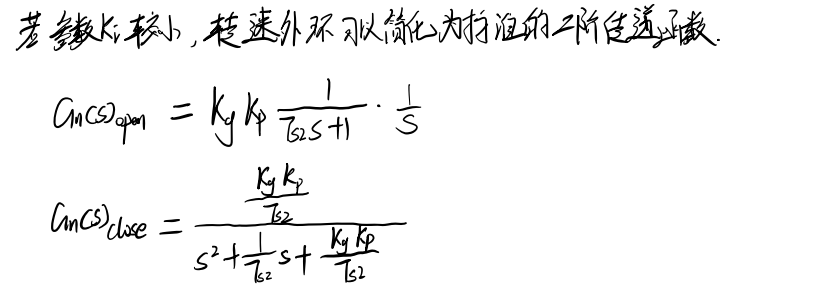 若参数Ki较小,转速外环可以简化为标准的二阶传递函数.
Gn(s)open = Kg Kp 1/(Ts2 s+1) · 1/s
Gn(s)close = (Kg Kp/Ts2)/(s²+1/Ts2 s+Kg Kp/Ts2)